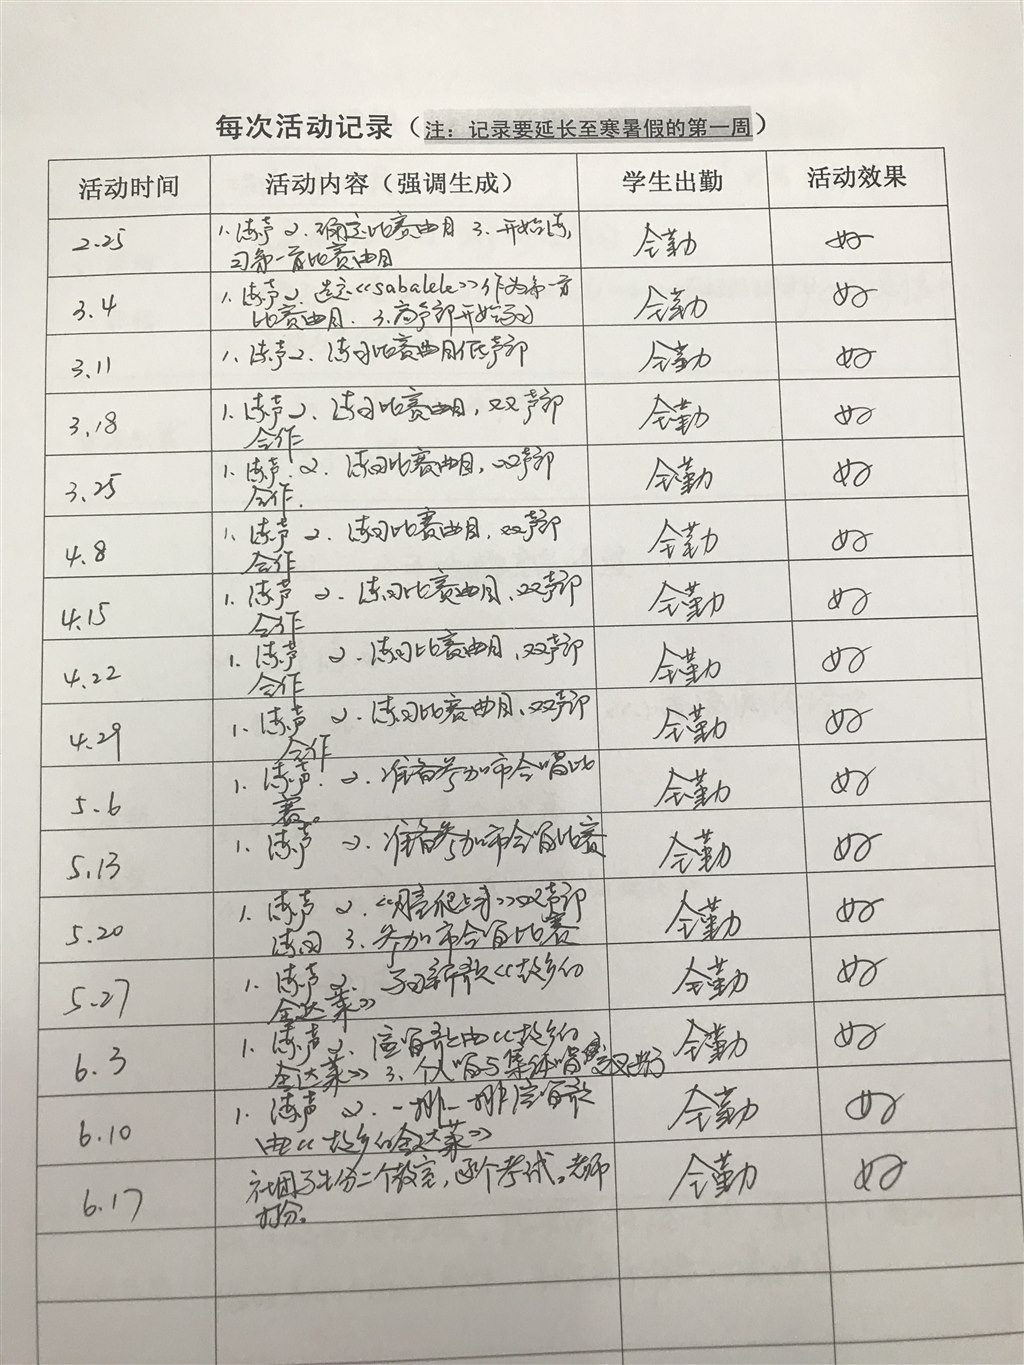 每次活动记录（注：记录要延长至寒暑假的第一周）
活动时间 活动内容（强调生成） 学生出勤 活动效果
2.25 1.练声 2.确定比赛曲目 3.开始练 全勤 好
习第一首比赛曲目
3.4 1.练声 2.选定《sabalele》作为第一首 全勤 好
比赛曲目. 3.高声部开始练习
3.11 1.练声 2.练习比赛曲目低声部 全勤 好
3.18 1.练声 2.练习比赛曲目,双声部 全勤 好
合作
3.25 1.练声. 2.练习比赛曲目,双声部 全勤 好
合作.
4.8 1.练声 2.练习比赛曲目,双声部 全勤 好
合作
4.15 1.练声 2.练习比赛曲目、双声部 全勤 好
合作
4.22 1.练声 2.练习比赛曲目、双声部 全勤 好
合作
4.29 1.练声 2.练习比赛曲目、双声部 全勤 好
合作
5.6 1.练声. 2.准备参加市合唱比 全勤 好
赛。
5.13 1.练声 2.准备参加市合唱比赛 全勤 好
5.20 1.练声 2.《月亮爬上来》双声部 全勤 好
练习 3.参加市合唱比赛
5.27 1.练声 2.学习新歌《故乡的 全勤 好
金达莱》
6.3 1.练声 2.演唱歌曲《故乡的 全勤 好
金达莱》 3.个人唱与集体唱
6.10 1.练声 2.一排一排演唱歌 全勤 好
曲《故乡的金达莱》
6.17 社团学生分二个教室,逐个考试。老师 全勤 好
打分。